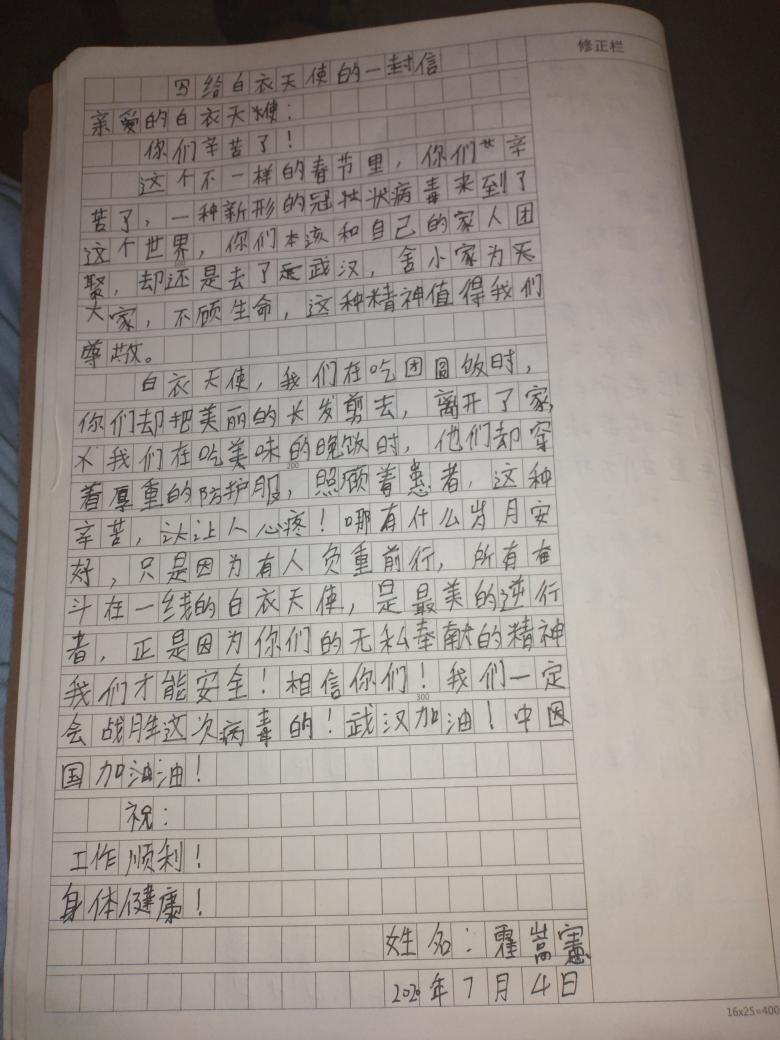 修正栏
写给白衣天使的一封信
亲爱的白衣天使：
你们辛苦了！
这个不一样的春节里，你们辛
苦了，一种新形的冠壮状病毒来到了
这个世界，你们本该和自己的家人团
聚，却还是去了武汉，舍小家为
大家，不顾生命，这种精神值得我们
尊敬。
白衣天使，我们在吃团圆饭时，
你们却把美丽的长发剪去，离开了家，
我们在吃美味的晚饭时，他们却穿
着厚重的防护服，照顾着患者，这种
200
辛苦，让人心疼！哪有什么岁月安
好，只是因为有人负重前行，所有奋
斗在一线的白衣天使，是最美的逆行
者，正是因为你们的无私奉献的精神
我们才能安全！相信你们！我们一定
300
会战胜这次病毒的！武汉加油！中
国加油油！
祝：
工作顺利！
身体健康！
姓名：霍嵩憲
2020年7月4日
16x25=400